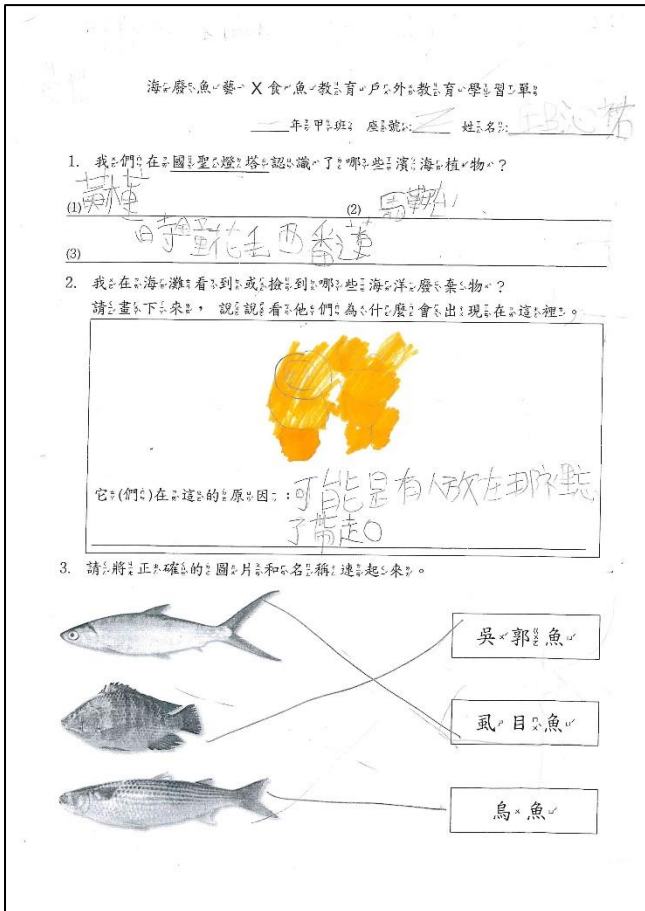 海廢魚藝 X 食魚教育戶外教育學習單
年甲班 座號: 2 姓名: 邱沁祐
1. 我們在國聖燈塔認識了哪些濱海植物?
(1) 黃槿 (2) 馬鞍
(3) 毛西番蓮
2. 我在海灘看到或撿到哪些海洋廢棄物?
請畫下來,說說看他們為什麼會出現在這裡。
它(們)在這的原因:可能是有人放在那忘
了帶走。
3. 請將正確的圖片和名稱連起來。
吳郭魚
虱目魚
烏魚